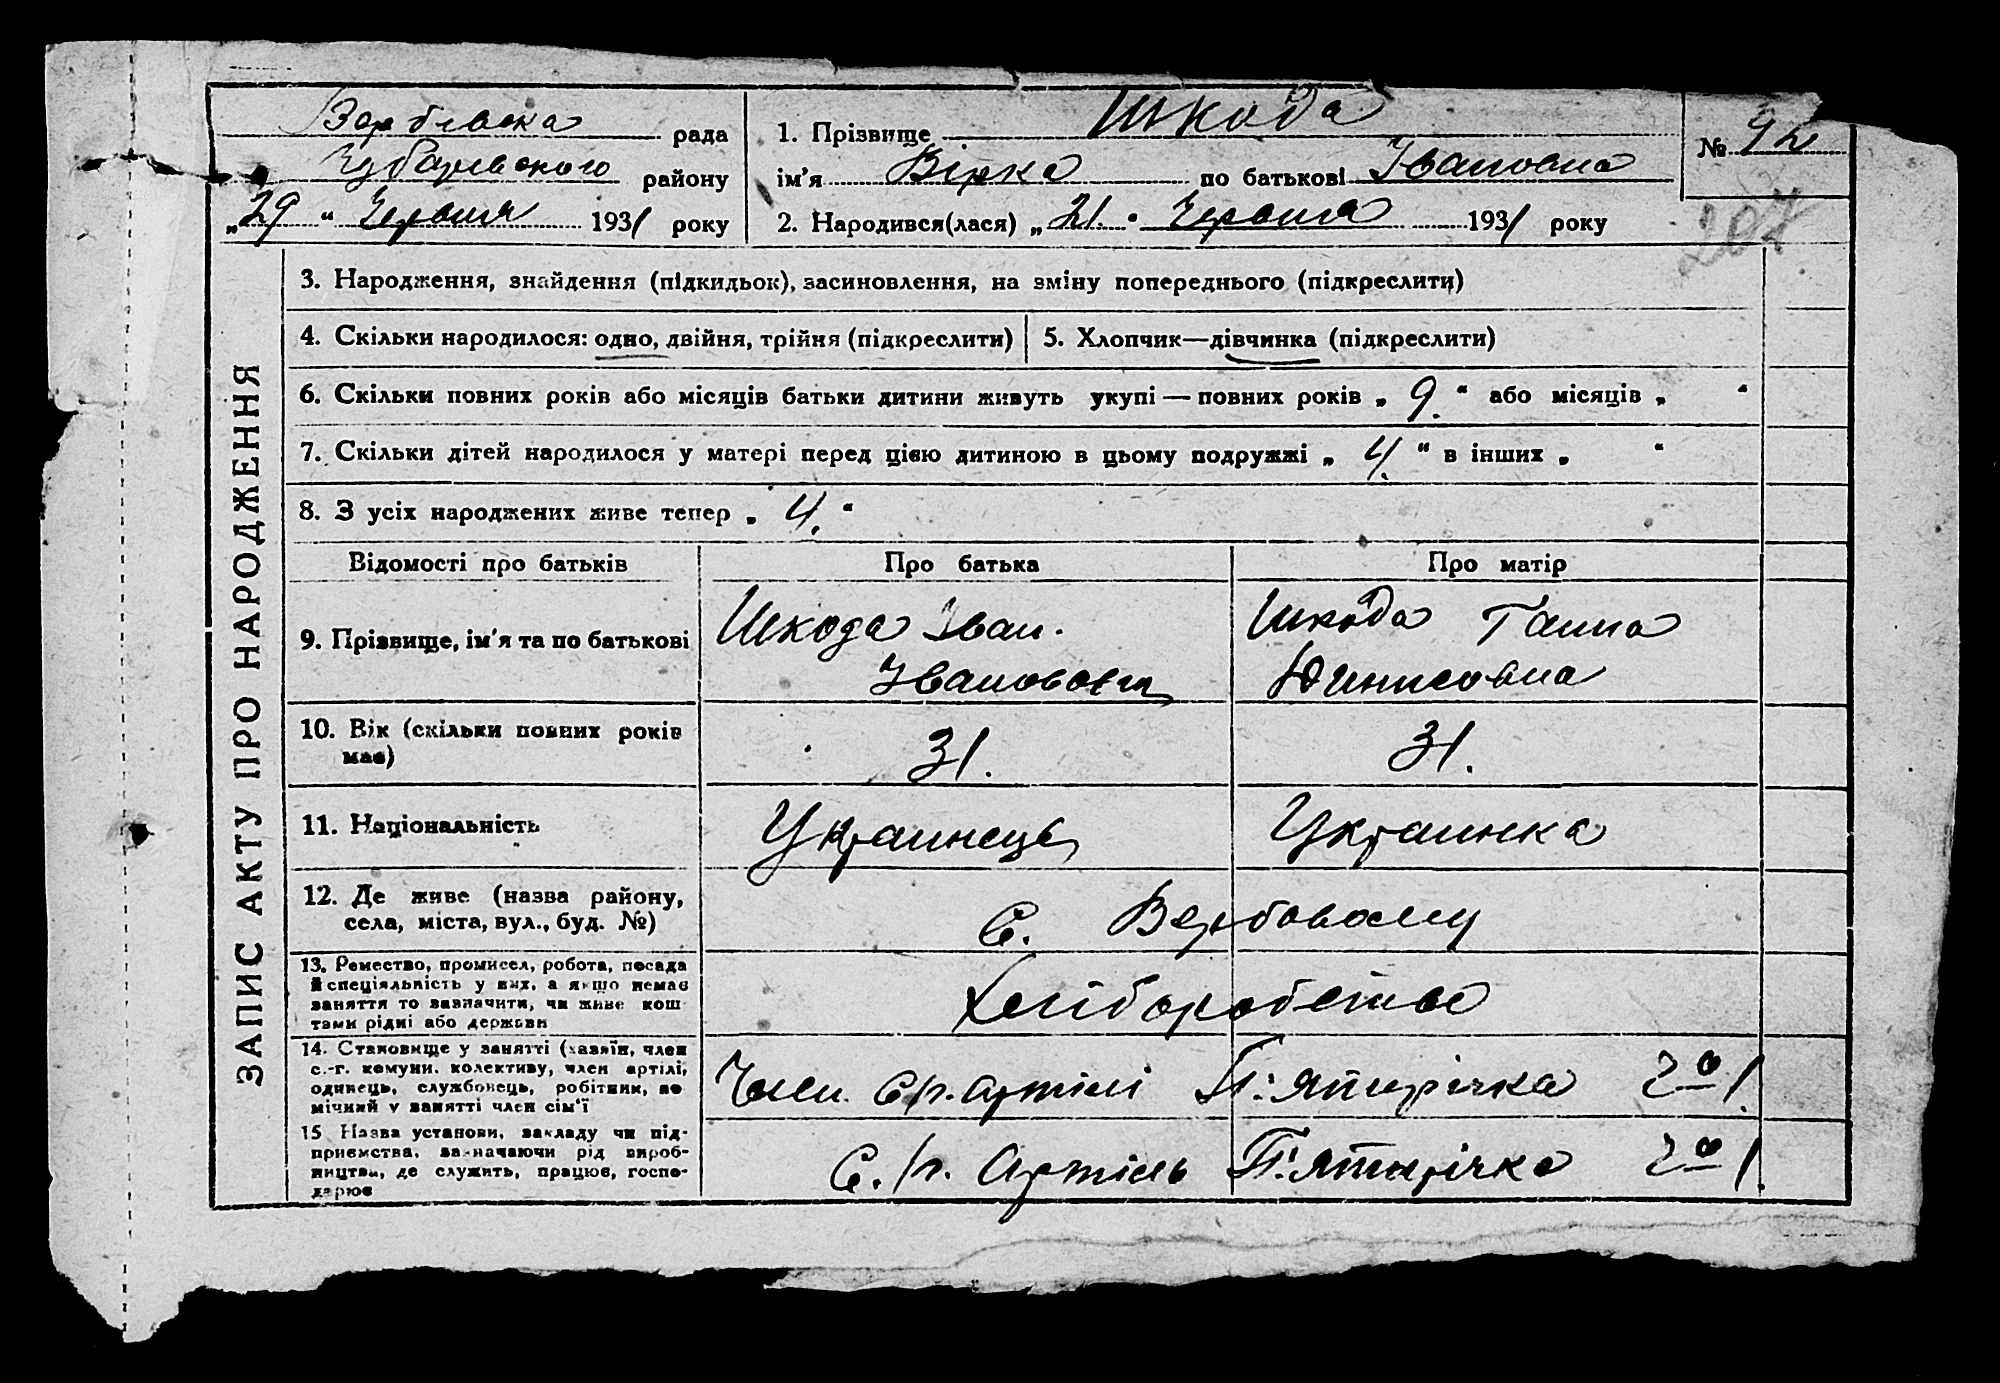 Вербівска рада
Чубарівского району
„29“ Червня 1931 року
1. Прізвище Шкода
ім'я Вірка по батькові Івановна
2. Народився(лася) „21.“ Червня 1931 року
№ 92
207
ЗАПИС АКТУ ПРО НАРОДЖЕННЯ
3. Народження, знайдення (підкидьок), засиновлення, на зміну попереднього (підкреслити)
4. Скільки народилося: одно, двійня, трійня (підкреслити)
5. Хлопчик—дівчинка (підкреслити)
6. Скільки повних років або місяців батьки дитини живуть укупі — повних років „ 9. “ або місяців „ “
7. Скільки дітей народилося у матері перед цією дитиною в цьому подружжі „ 4. “ в інших „ “
8. З усіх народжених живе тепер „ 4. “
Відомості про батьків Про батька Про матір
9. Прізвище, ім'я та по батькові
Шкода Іван.
Івановович
Шкода Ганна
Юинисовна
10. Вік (скільки повних років
має)
31.
31.
11. Національність Украинець Украинка
12. Де живе (назва району,
села, міста, вул., буд. №)
С. Вербовому
13. Ремество, промисел, робота, посада
й спеціяльність у них, а якщо немає
заняття то зазначити, чи живе кош-
тами рідні або держави
Хліборобство
14. Становище у занятті (хазяїн, член
с.-г. комуни, колективу, член артілі,
одинець, службовець, робітник, по-
мічний у занятті член сім'ї
Член С/г. артілі П'ятирічка 2º 1.
15 Назва установи, закладу чи під-
приємства, зазначаючи рід вироб-
ництва, де служить, працює, госпо-
дарює
С./г. Артіль П'ятирічка 2º 1.